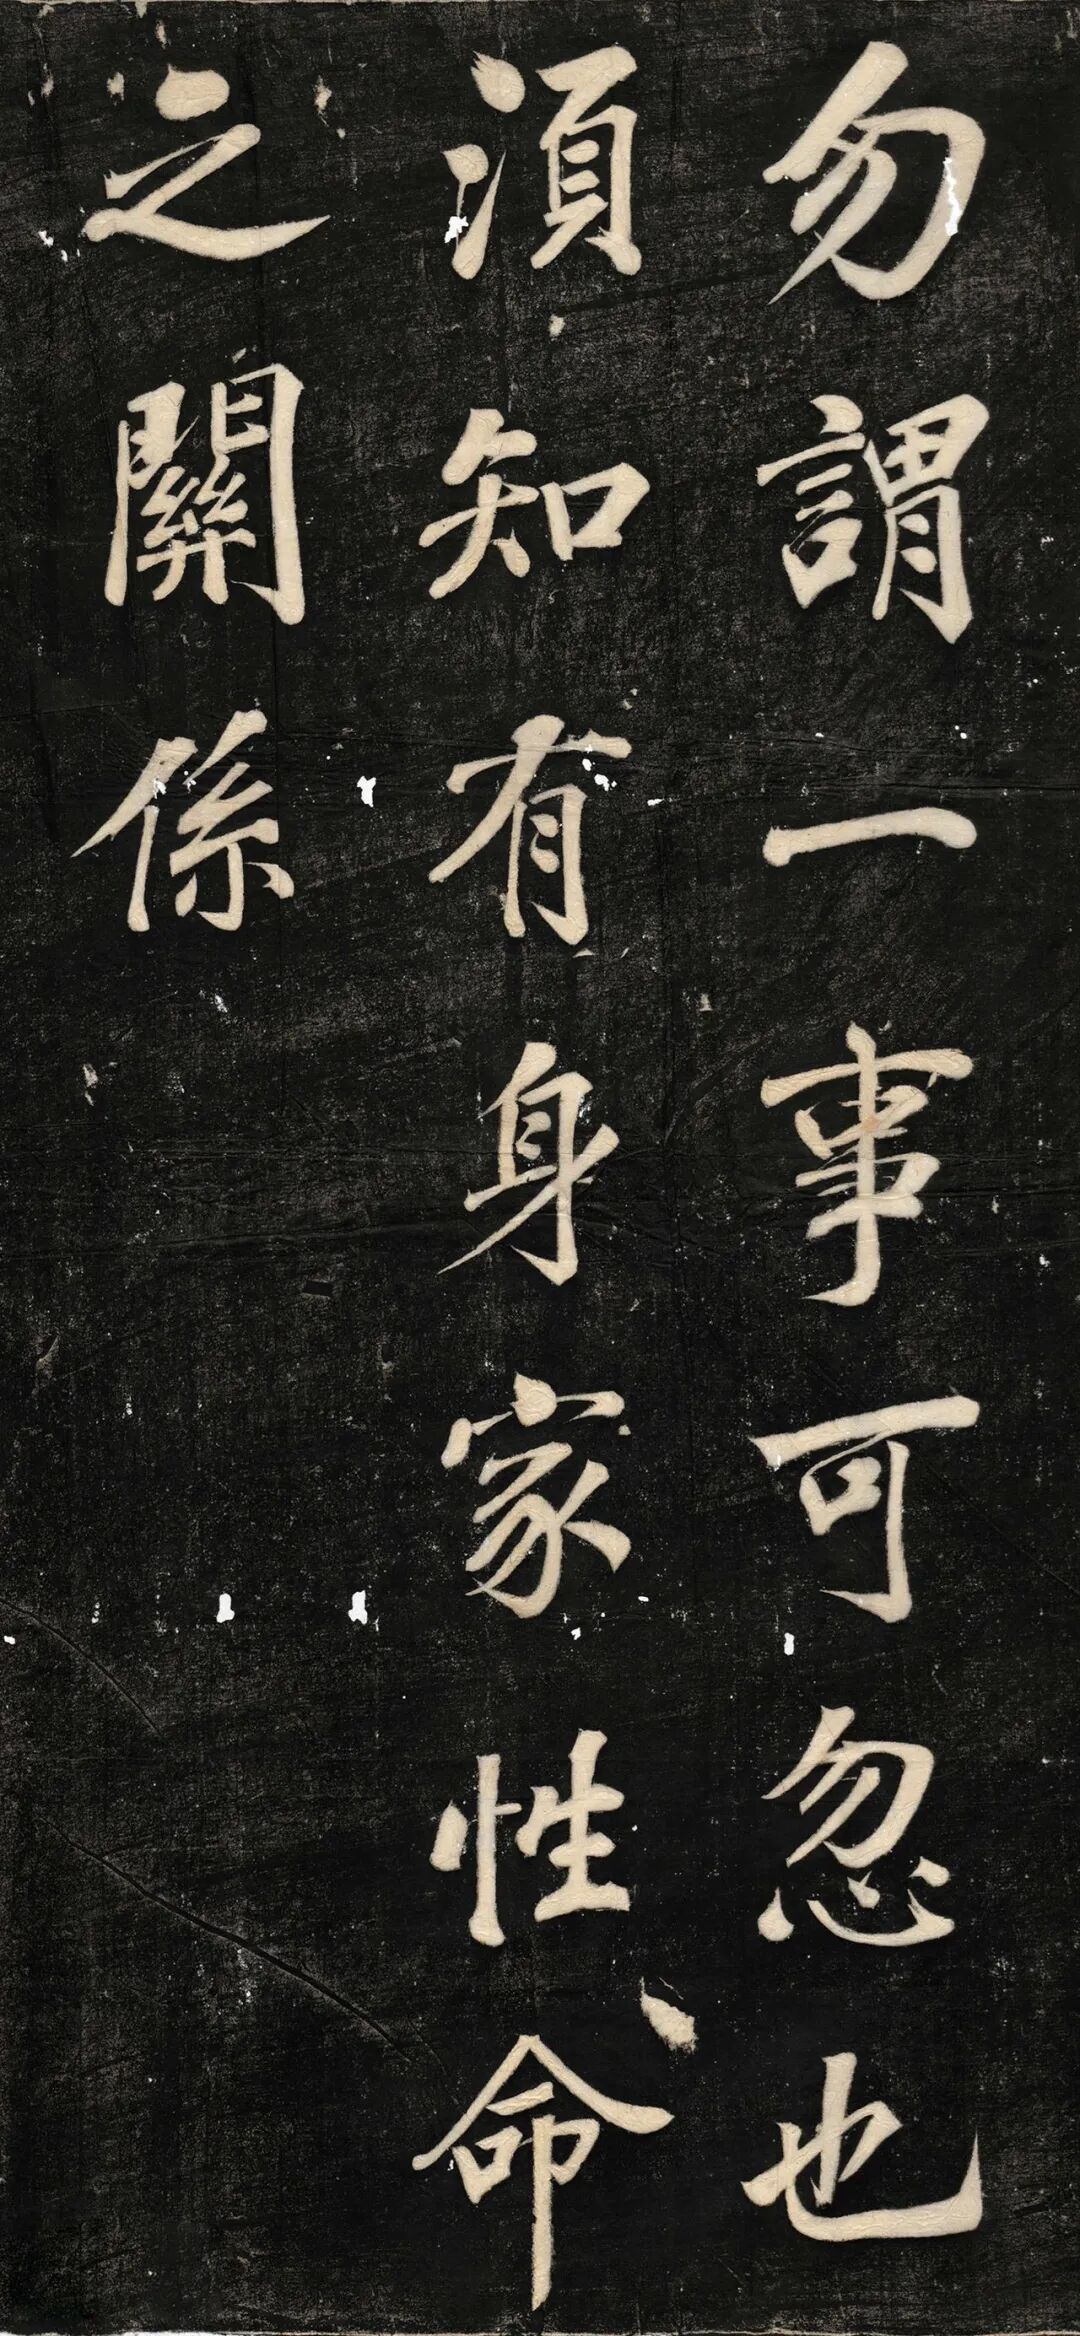 勿謂一事可忽也
須知有身家性命
之關係